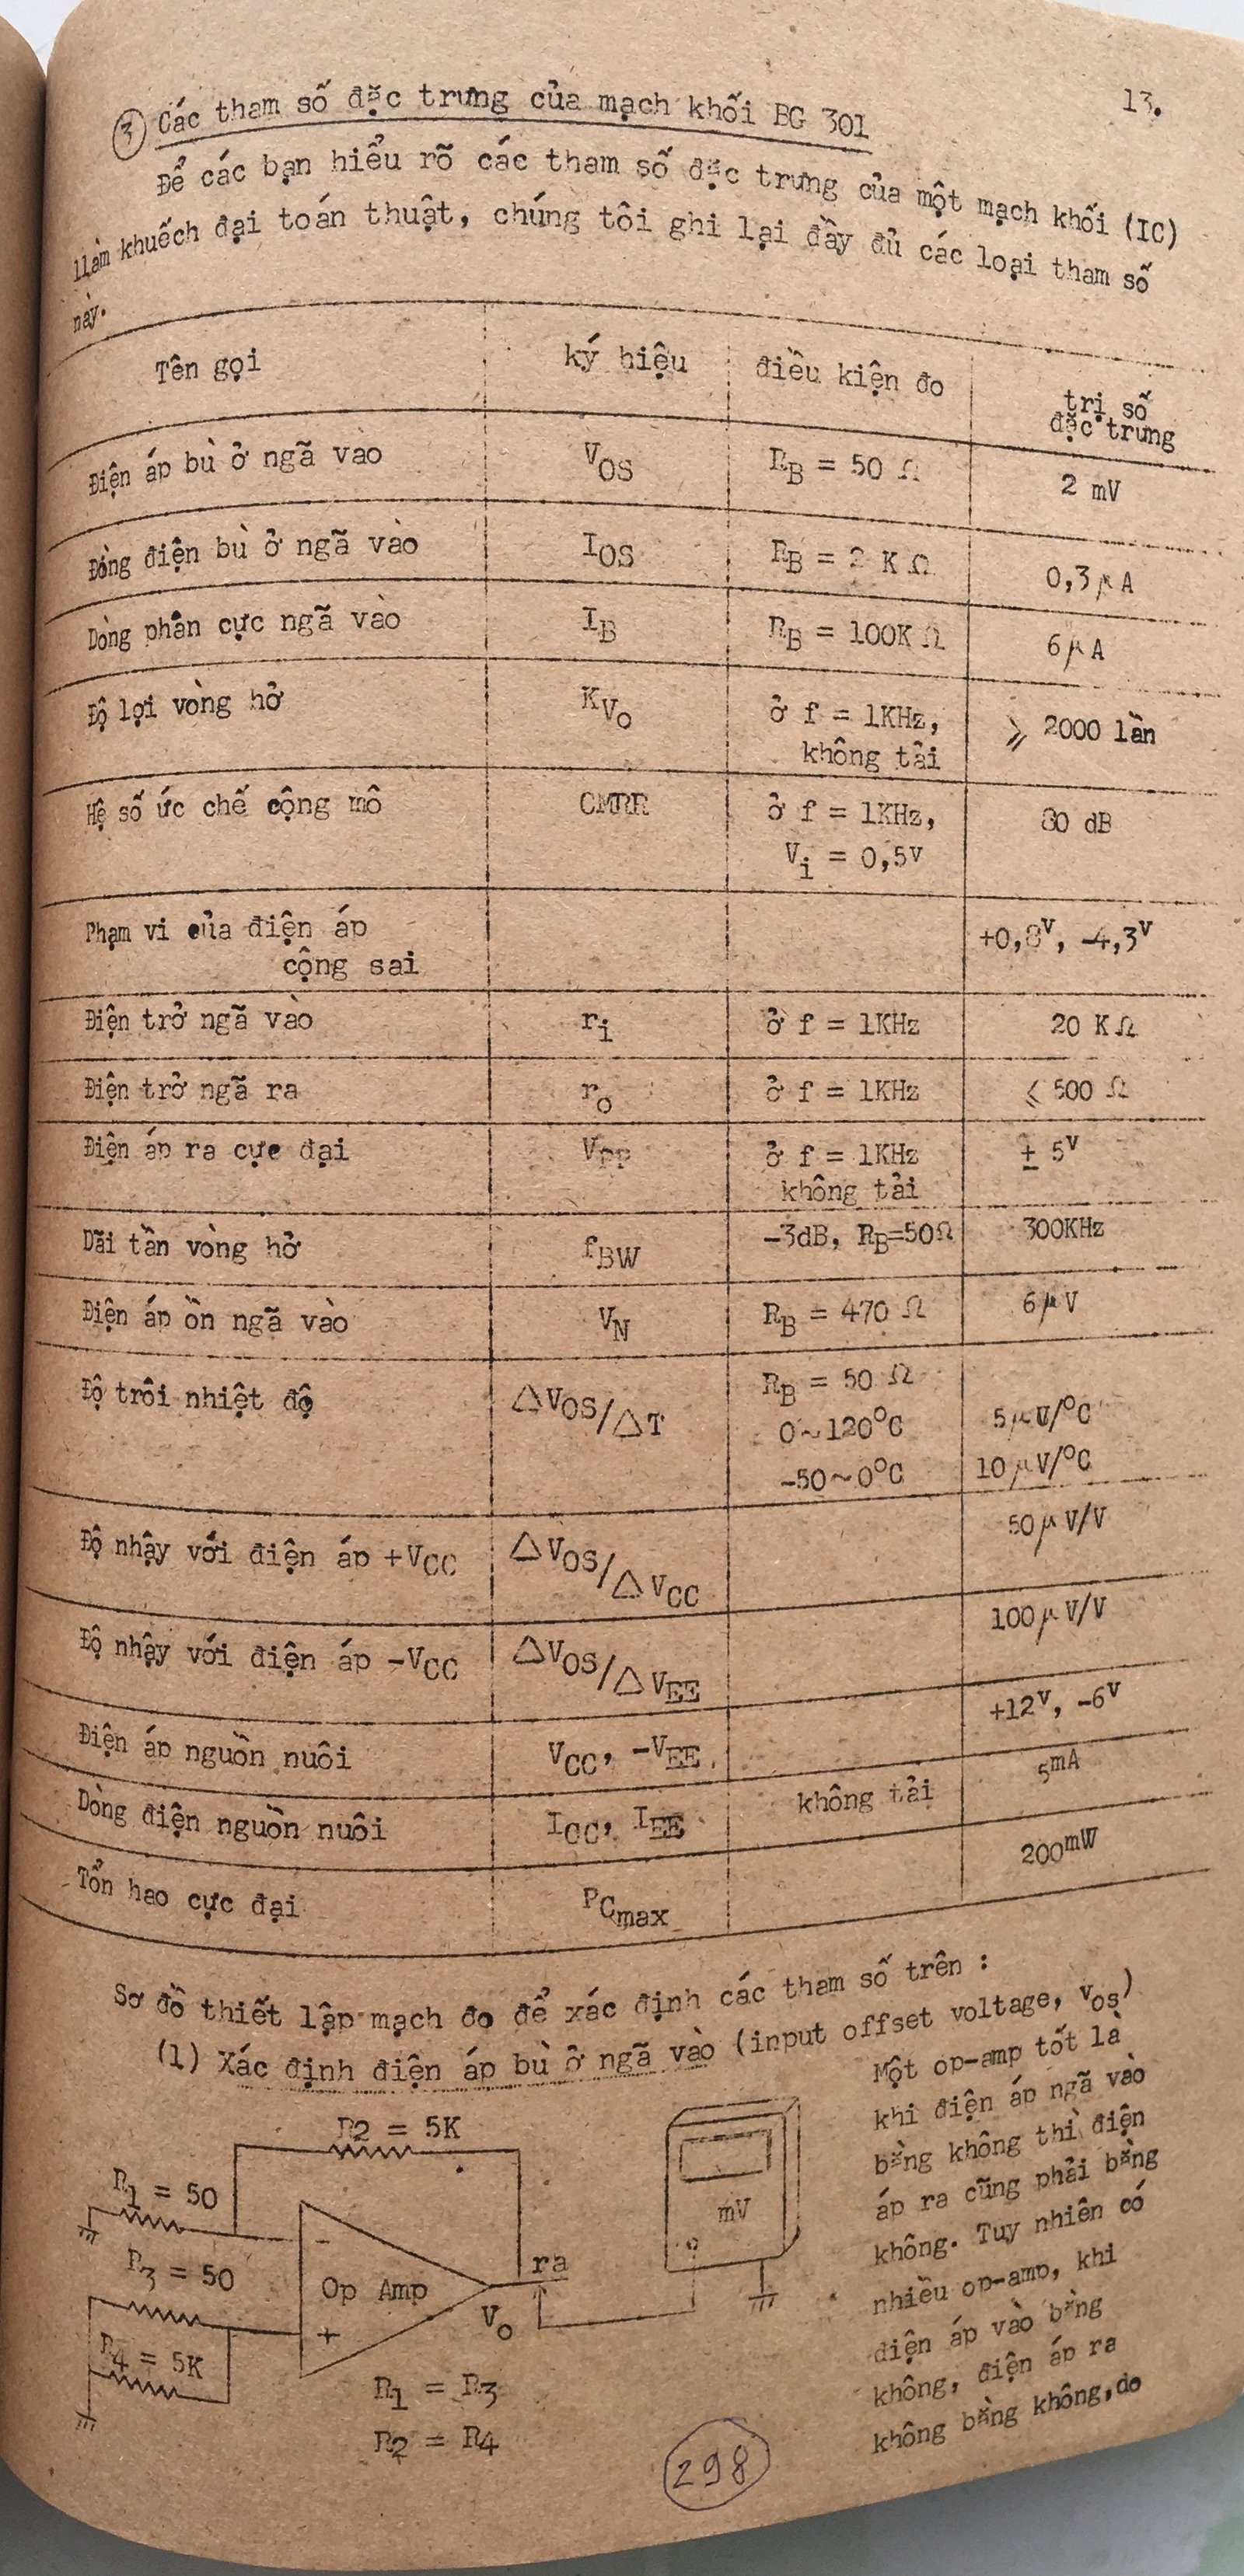 13.
③ Các tham số đặc trưng của mạch khối BG 301
Để các bạn hiểu rõ các tham số đặc trưng của một mạch khối (IC)
làm khuếch đại toán thuật, chúng tôi ghi lại đầy đủ các loại tham số
này.
Tên gọi ký hiệu điều kiện đo trị số đặc trưng
Điện áp bù ở ngã vào VOS RB = 50 Ω 2 mV
Dòng điện bù ở ngã vào IOS RB = 2 KΩ 0,3μA
Dòng phân cực ngã vào IB RB = 100KΩ 6μA
Độ lợi vòng hở KVo ở f = 1KHz, ⩾ 2000 lần
không tải
Hệ số ức chế cộng mô CMRR ở f = 1KHz, 80 dB
Vi = 0,5V
Phạm vi của điện áp +0,8V, -4,3V
cộng sai
Điện trở ngã vào ri ở f = 1KHz 20 KΩ
Điện trở ngã ra ro ở f = 1KHz ⩽ 500 Ω
Điện áp ra cực đại VPP ở f = 1KHz ± 5V
không tải
Dãi tần vòng hở fBW -3dB, RB=50Ω 300KHz
Điện áp ồn ngã vào VN RB = 470 Ω 6μV
Độ trôi nhiệt độ △VOS/△T RB = 50 Ω
0~120°C 5μV/°C
-50~0°C 10μV/°C
Độ nhậy với điện áp +VCC △VOS/△VCC 50μV/V
Độ nhậy với điện áp -VCC △VOS/△VEE 100μV/V
Điện áp nguồn nuôi VCC, -VEE +12V, -6V
Dòng điện nguồn nuôi ICC, IEE không tải 5mA
Tổn hao cực đại PCmax 200mW
Sơ đồ thiết lập mạch đo để xác định các tham số trên :
(1) Xác định điện áp bù ở ngã vào (input offset voltage, vos)
Một op-amp tốt là
khi điện áp ngã vào
bằng không thì điện
áp ra cũng phải bằng
không. Tuy nhiên có
nhiều op-amp, khi
điện áp vào bằng
không, điện áp ra
không bằng không,do
R2 = 5K
R1 = 50
mV
-
R3 = 50
Op Amp
ra
+
Vo
R4 = 5K
R1 = R3
R2 = R4
298